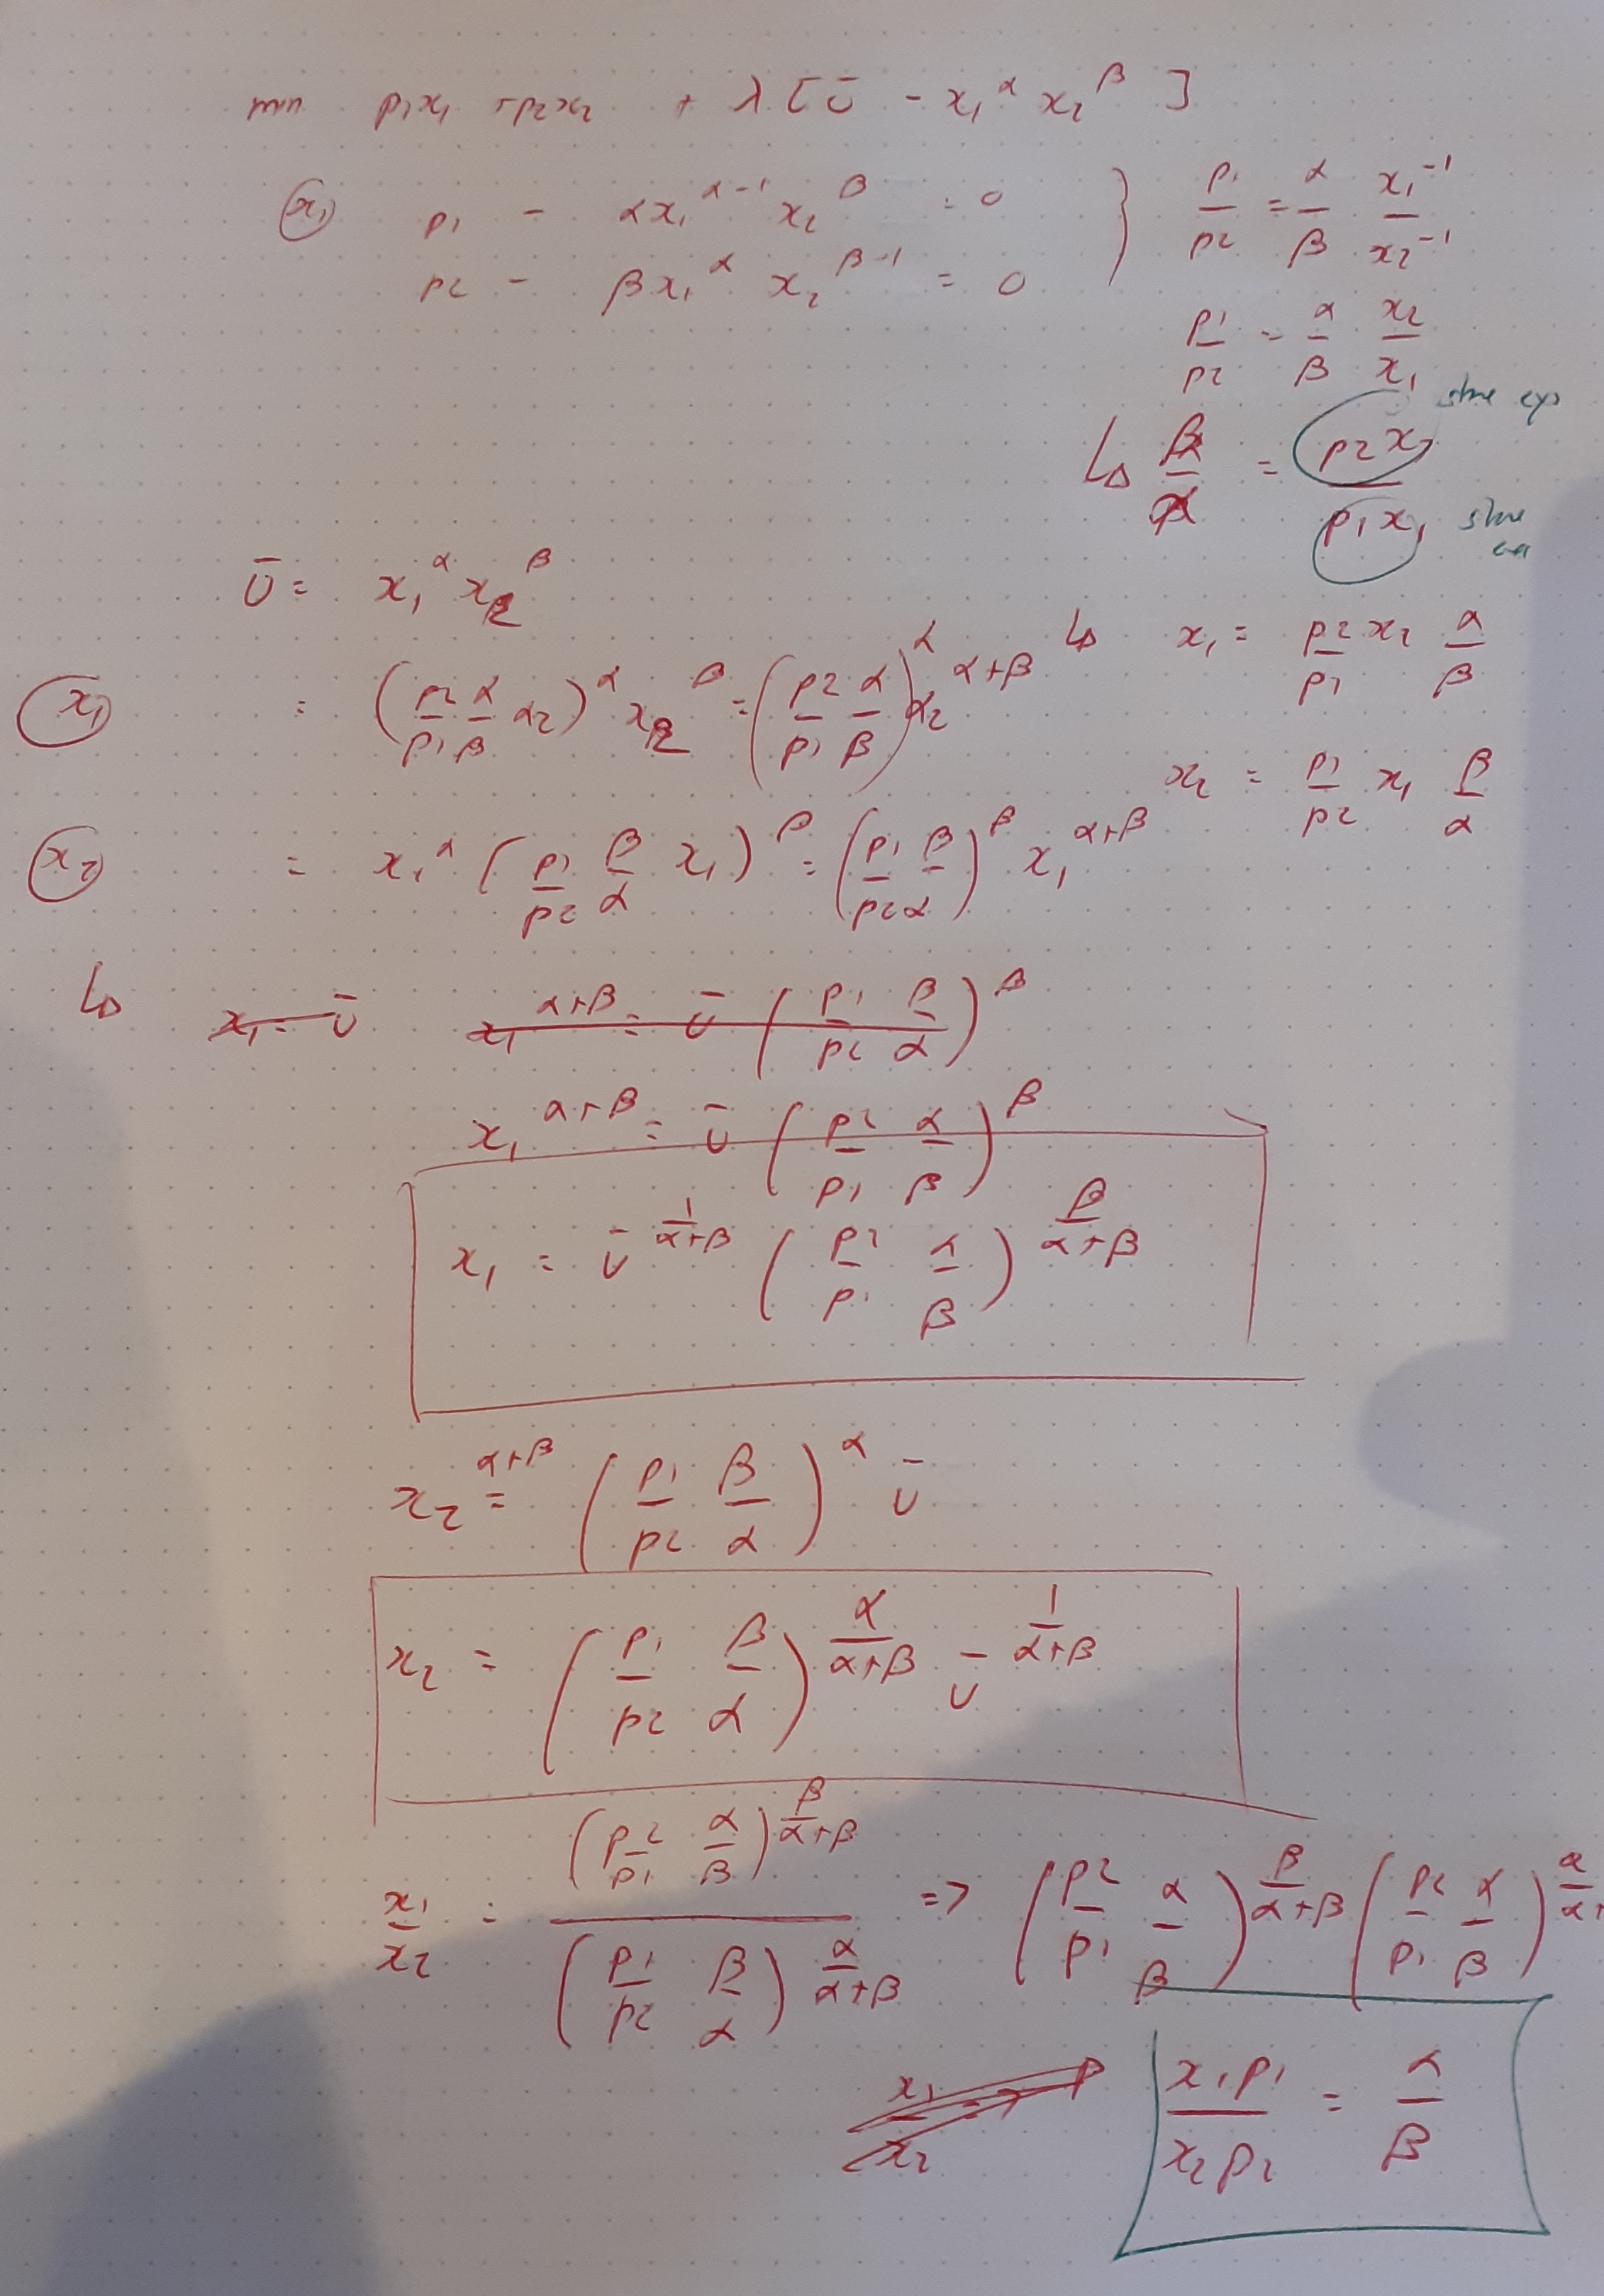 min p1x1 + p2x2 + λ [Ū - x1^α x2^β ]
(x1) p1 - αx1^(α-1) x2^β = 0 } p1/p2 = α/β x1^-1/x2^-1
p2 - βx1^α x2^(β-1) = 0
p1/p2 = α/β x2/x1
↳ β/α = p2x2/p1x1
share
Ū = x1^α x2^β
↳ x1 = p2/p1 x2 α/β
(x1) = (p2/p1 α/β x2)^α x2^β = (p2/p1 α/β)^α x2^(α+β)
x2 = p1/p2 x1 β/α
(x2) = x1^α (p1/p2 β/α x1)^β = (p1/p2 β/α)^β x1^(α+β)
↳ x1 = Ū x1^(α+β) = Ū (p1/p2 β/α)^β
x1^(α+β) = Ū (p2/p1 α/β)^β
x1 = Ū^(1/(α+β)) (p2/p1 α/β)^(β/(α+β))
x2^(α+β) = (p1/p2 β/α)^α Ū
x2 = (p1/p2 β/α)^(α/(α+β)) Ū^(1/(α+β))
x1/x2 = (p2/p1 α/β)^(β/(α+β)) / (p1/p2 β/α)^(α/(α+β)) => (p2/p1 α/β)^(β/(α+β)) (p2/p1 α/β)^(α/(α+
x1/x2 = p
x1p1/x2p2 = α/β